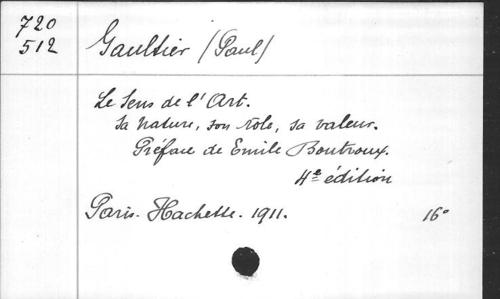 720
512
Gaultier (Paul)
Le Sens de l'Art.
Sa Nature, son rôle, sa valeur.
Préface de Emile Boutroux.
4e édition
Paris. Hachette. 1911.
16°